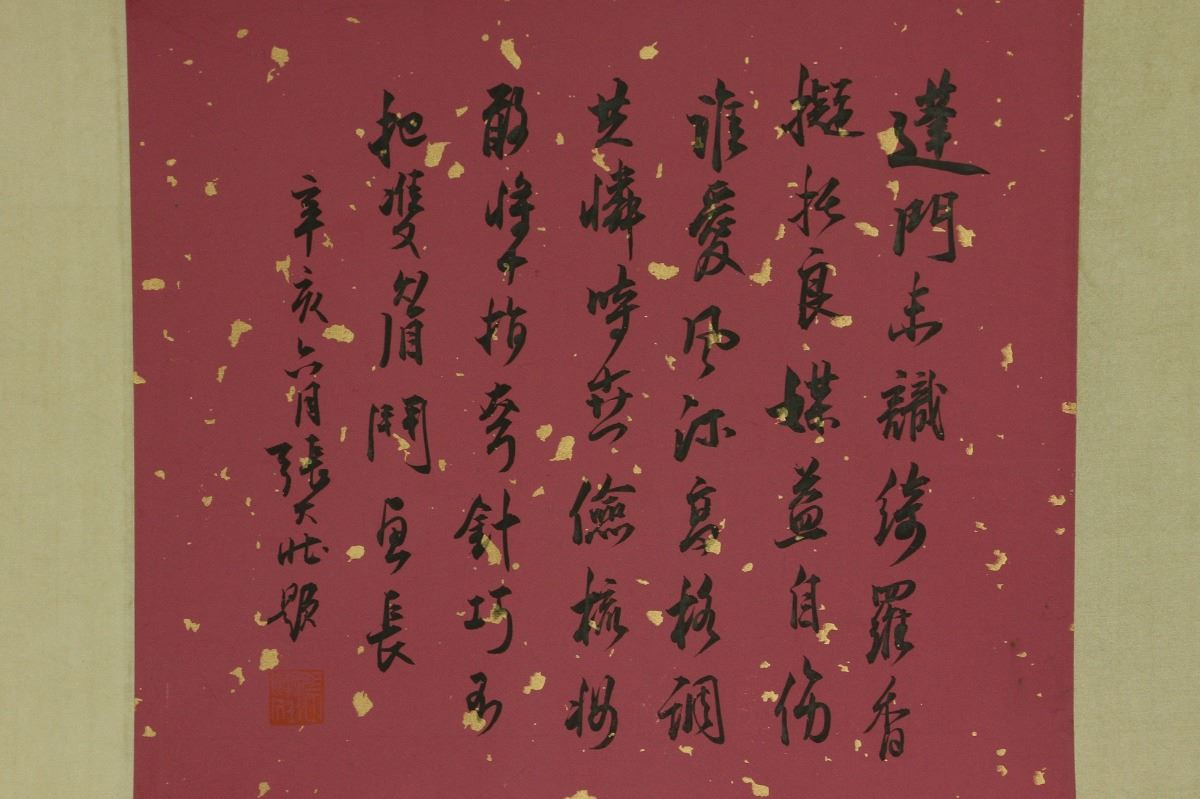 蓬門未識綺羅香
擬托良媒益自傷
誰愛風流高格調
共憐時世儉梳妝
敢將十指夸針巧不
把雙眉鬥畫長
辛亥六月張大壯題